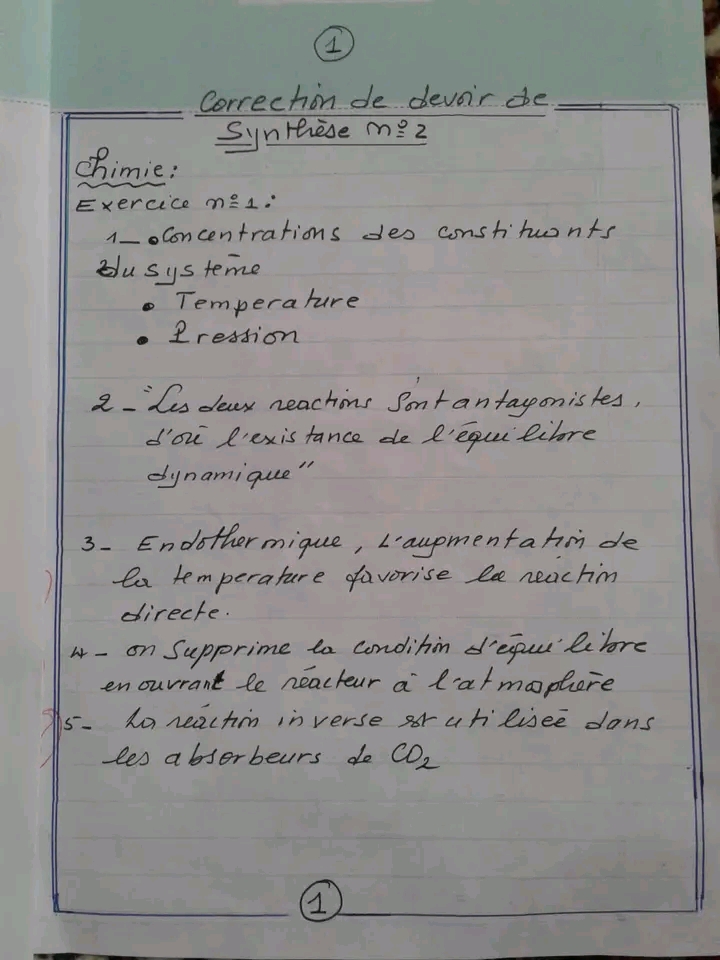 1
Correction de devoir de
Synthèse n°2
Chimie:
Exercice n°1:
1_ • Concentrations des constituants
du système
• Temperature
• Pression
2 - "Les deux reactions sont antagonistes,
d'où l'existance de l'équilibre
dynamique"
3 - Endothermique, L'augmentation de
la temperature favorise la reaction
directe.
4 - on supprime la condition d'équilibre
en ouvrant le réacteur à l'atmosphère
5 - La réaction inverse est utiliseé dans
les absorbeurs de CO2
1